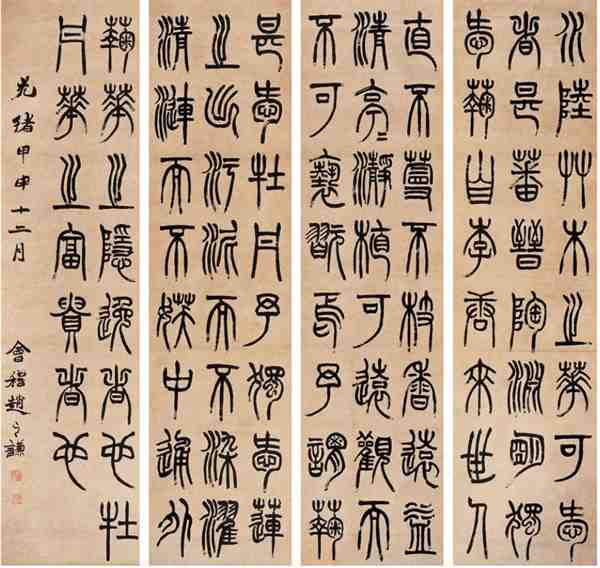 水陸艸木之華可愛
者甚蕃晉陶淵明獨
愛蘜自李唐來世人
直不蔓不枝香遠益
清亭=瀞植可遠觀而
不可褻翫焉予謂蘜
甚愛牡丹予獨愛蓮
之出汙泥而不染濯
清漣而不妖中通外
蘜華之隱逸者也牡
丹華之富貴者也
光緒甲申十二月
會稽趙之謙